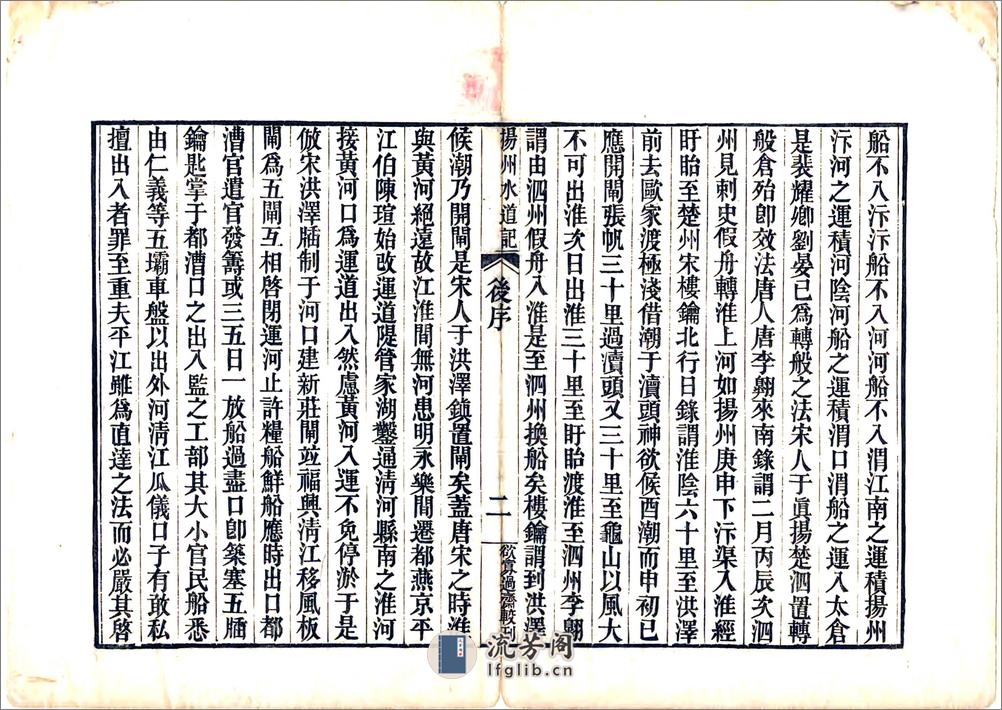 船不入汴汴船不入河河船不入渭江南之運積揚州
汴河之運積河陰河船之運積渭口渭船之運入太倉
是裴耀卿劉晏已爲轉般之法宋人于眞揚楚泗置轉
般倉殆卽效法唐人唐李翺來南錄謂二月丙辰次泗
州見刺史假舟轉淮上河如揚州庚申下汴渠入淮經
盱眙至楚州宋樓鑰北行日錄謂淮陰六十里至洪澤
前去歐家渡極淺借潮于瀆頭神欲候酉潮而申初已
應開閘張帆三十里過瀆頭又三十里至龜山以風大
不可出淮次日出淮三十里至盱眙渡淮至泗州李翺
謂由泗州假舟入淮是至泗州換船矣樓鑰謂到洪澤
揚州水道記
後序
二
欿寘過齋校刊
候潮乃開閘是宋人于洪澤鎭置閘矣蓋唐宋之時淮
與黃河絕遠故江淮間無河患明永樂間遷都燕京平
江伯陳瑄始改運道隄管家湖鑿通淸河縣南之淮河
接黃河口爲運道出入然慮黃河入運不免停淤于是
倣宋洪澤牐制于河口建新莊閘竝福興淸江移風板
閘爲五閘互相啓閉運河止許糧船鮮船應時出口都
漕官遣官發籌或三五日一放船過盡口卽築塞五牐
鑰匙掌于都漕口之出入監之工部其大小官民船悉
由仁義等五壩車盤以出外河淸江瓜儀口子有敢私
擅出入者罪至重夫平江雖爲直達之法而必嚴其啓
流芳阁
lfglib.cn